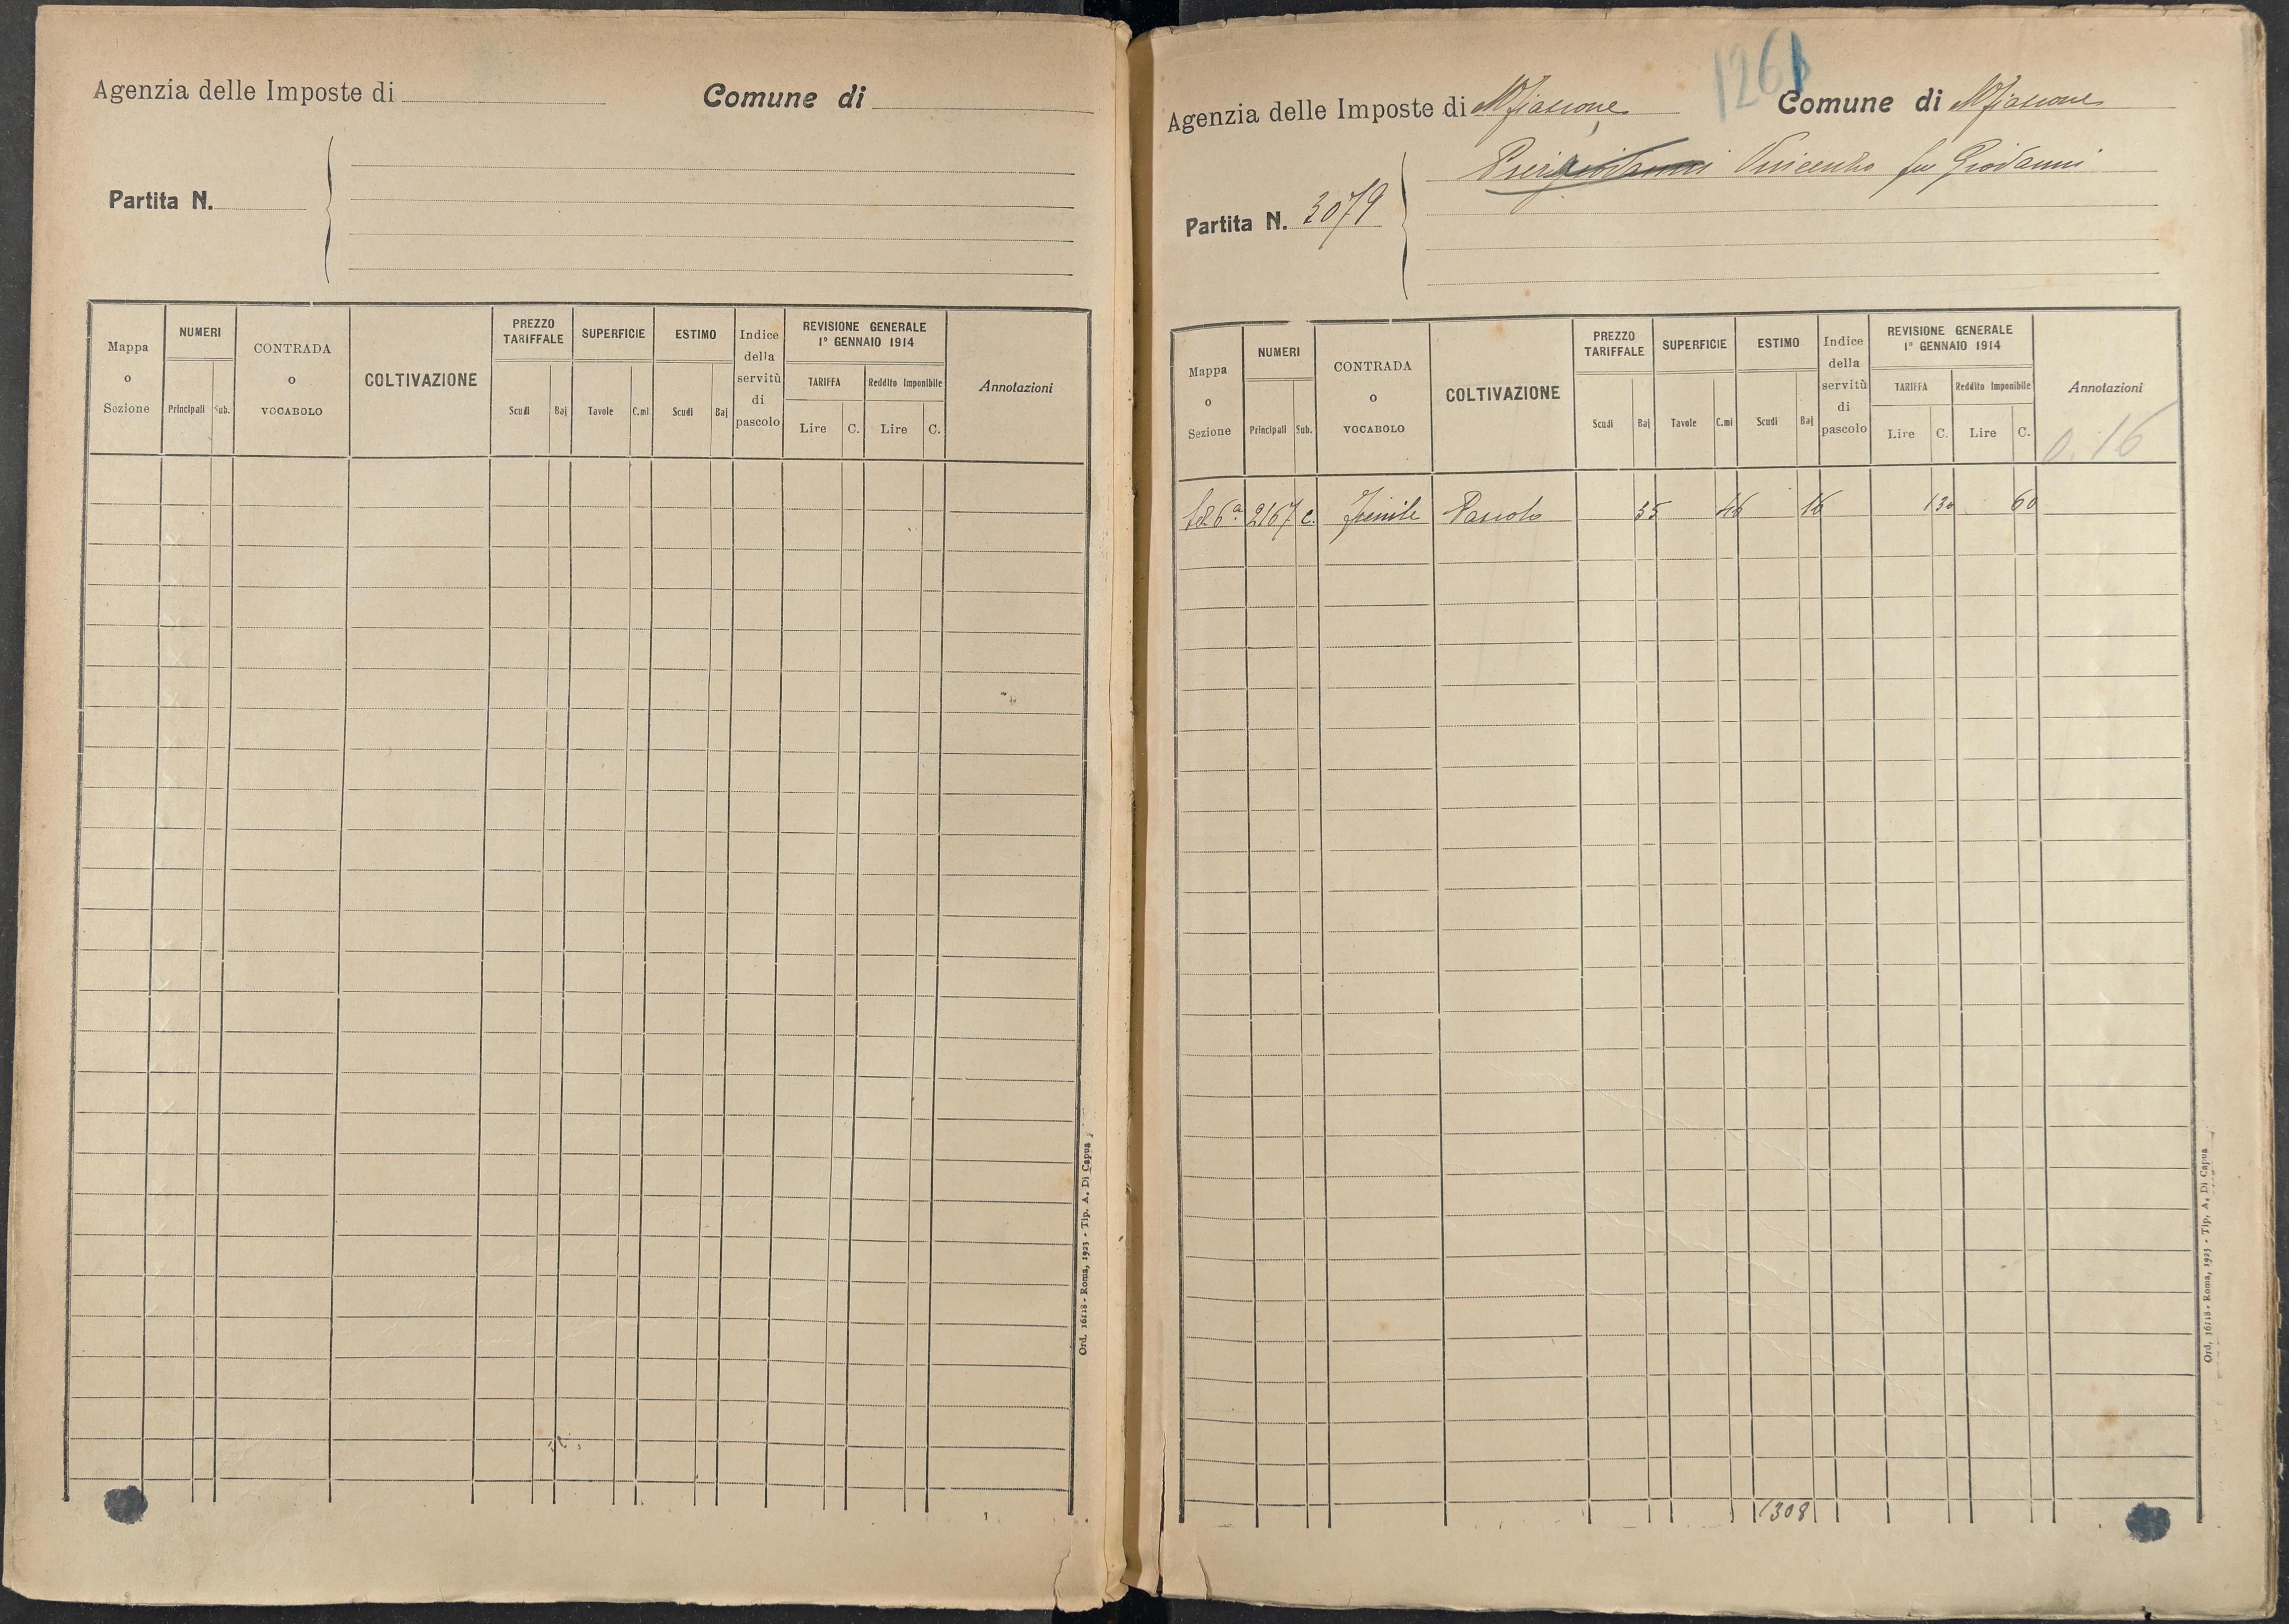 Agenzia delle Imposte di
Comune di
Partita N.
Mappa o Sezione
NUMERI
Principali Sub.
CONTRADA o VOCABOLO
COLTIVAZIONE
PREZZO TARIFFALE
Scudi Baj
SUPERFICIE
Tavole C.mi
ESTIMO
Scudi Baj
Indice della servitù di pascolo
REVISIONE GENERALE
1° GENNAIO 1914
TARIFFA
Lire C.
Reddito Imponibile
Lire C.
Annotazioni
Ord. 16118 - Roma, 1923 - Tip. A. Di Capua
1261
Agenzia delle Imposte di Mfiascone
Comune di Mfiascone
Vincenzo fu Giovanni
Partita N. 3079
Mappa o Sezione
NUMERI
Principali Sub.
CONTRADA o VOCABOLO
COLTIVAZIONE
PREZZO TARIFFALE
Scudi Baj
SUPERFICIE
Tavole C.mi
ESTIMO
Scudi Baj
Indice della servitù di pascolo
REVISIONE GENERALE
1° GENNAIO 1914
TARIFFA
Lire C.
Reddito Imponibile
Lire C.
Annotazioni
0.16
6ª 2167 c. Fienile Pascolo 35 46 16 130 60
1308
Ord. 16118 - Roma, 1923 - Tip. A. Di Capua